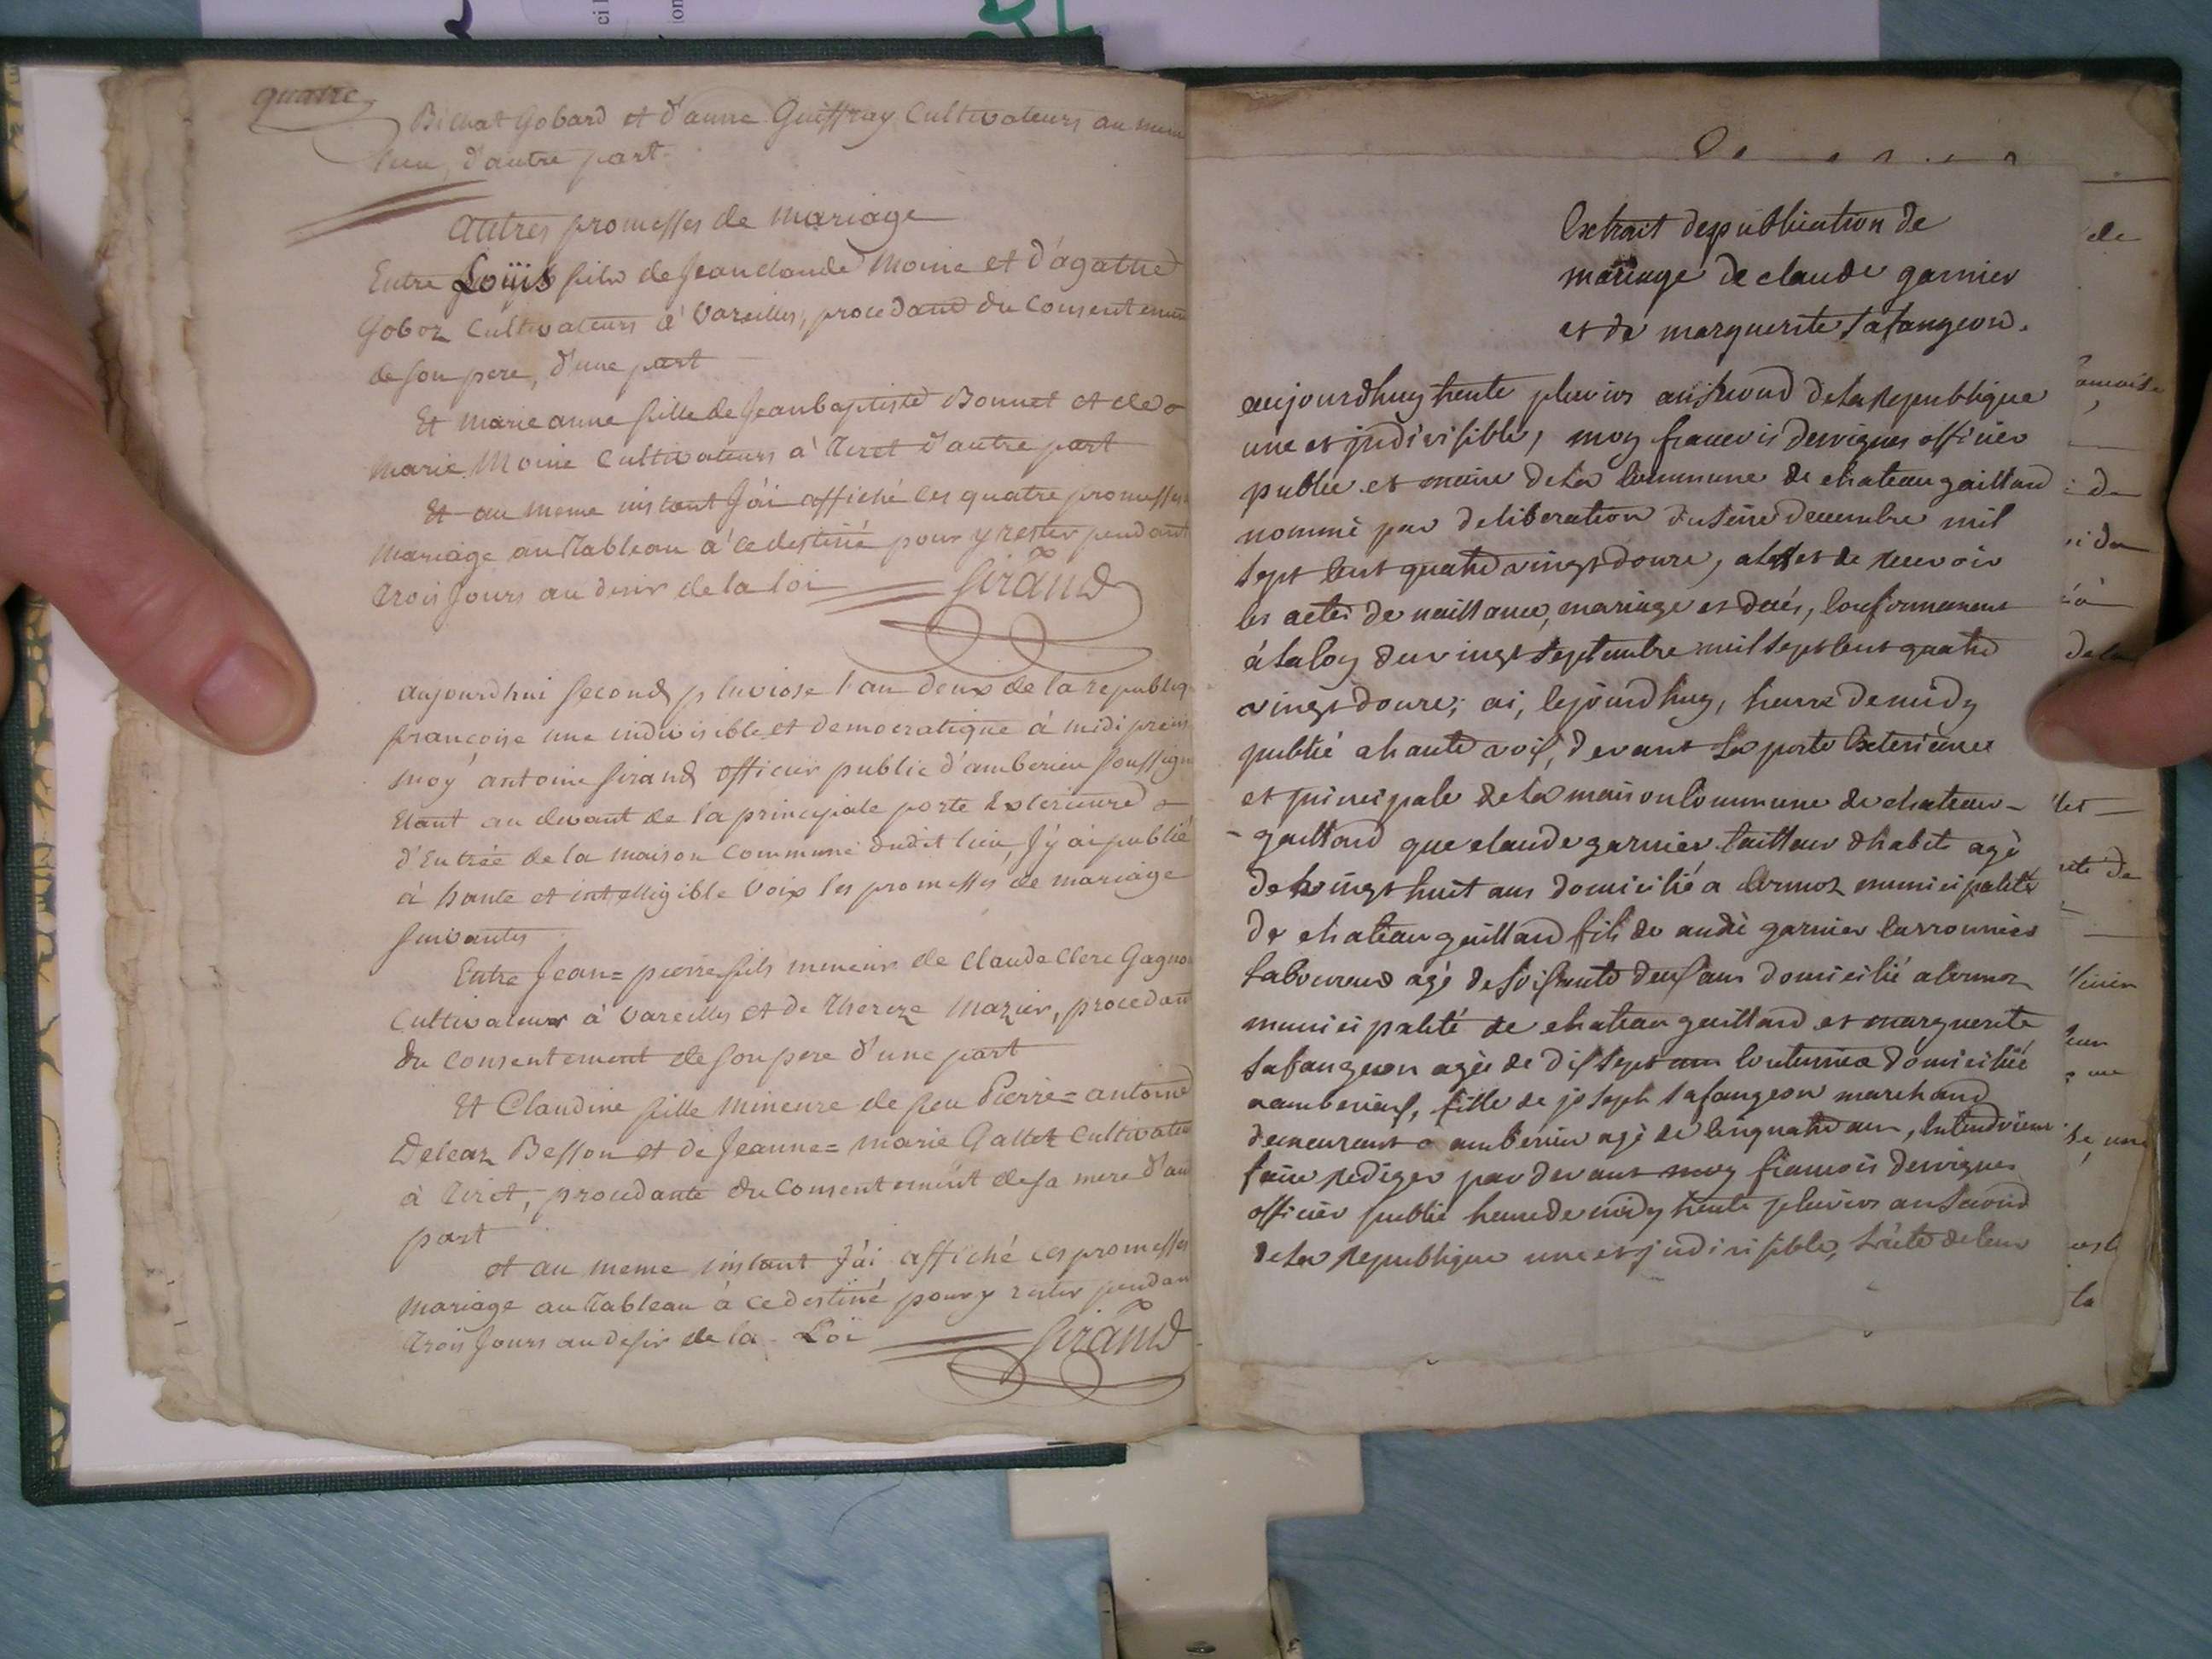 quatre
Bichat Gobard et d'anne Guiffray Cultivateurs au meme
lieu, d'autre part.
Autres promesses de mariage
Entre Loüis fils de Jean claude Moine et d'agathe
Goboz Cultivateurs à Vareilles, procedant du Consentement
de son pere, d'une part
Et Marie anne fille de Jean baptiste Bonnet et de
Marie Moine Cultivateurs à Tiret d'autre part
Et au meme instant J'ai affiché les quatre promesses
mariage au Tableau à ce destiné pour y rester pendant
trois Jours au desir de la loi Sirand
aujourdhui second pluviose l'an deux de la republiq
françoise une indivisible et democratique à midi précis
moy antoine Sirand officier public d'amberieu soussigné
Etant au devant de la principale porte Exterieure
d'Entrée de la maison Commune dudit lieu, J'y ai publié
à haute et intelligible Voix les promesses de mariage
suivantes
Entre Jean=pierre fils mineur de Claude Clerc Gagno
Cultivateur à Vareilles et de Thereze Mazuir, procedant
du Consentement de son pere d'une part
Et Claudine fille Mineure de feu Pierre=antoine
Deleaz Besson et de Jeanne=marie Gallet Cultivate
à Tiret, procedante du Consentement de sa mere d'au
part
et au meme instant J'ai affiché ces promesses
mariage au Tableau à ce destiné pour y rester pendan
trois Jours au desir de la Loi Sirand
Extrait de publication de
mariage de claude garnier
et de marguerite Safangeon.
aujourdhuy trente pluvios an second de la Republique
une et jndivisible, moy francois dervignes officier
public et maire de la Commune de chateaugaillard
nommé par deliberation du seize decembre mil
sept Cent quatre vingt douze, a leffet de recevoir
les actes de naissance, mariage et deces, Conformement
à la loy du vingt septembre mil sept Cent quatre
vingt douze; ai, lejourdhuy, heure de midy
publié a haute voix, devant la porte Exterieure
et principale de la maison Commune de chateau-
-gaillard que claude garnier tailleur dhabit agé
de vingt huit ans domicilié a Cormoz municipalité
de chateaugaillard fils de andré garnier Carronnier
Laboureur agé de soixante deux ans domicilié a Cormoz
municipalité de chateaugaillard et marguerite
safangeon agée de dix sept ans Couturiere domiciliée
a amberieux, fille de joseph safangeon marchand
demeurant a amberieu agé de cinquante ans, Entendvient
faire rediger par devant moy francois dervignes
officier public heure de midy trente pluvios an second
de la Republique une et jndivisible, L'acte de leur
de
de
la